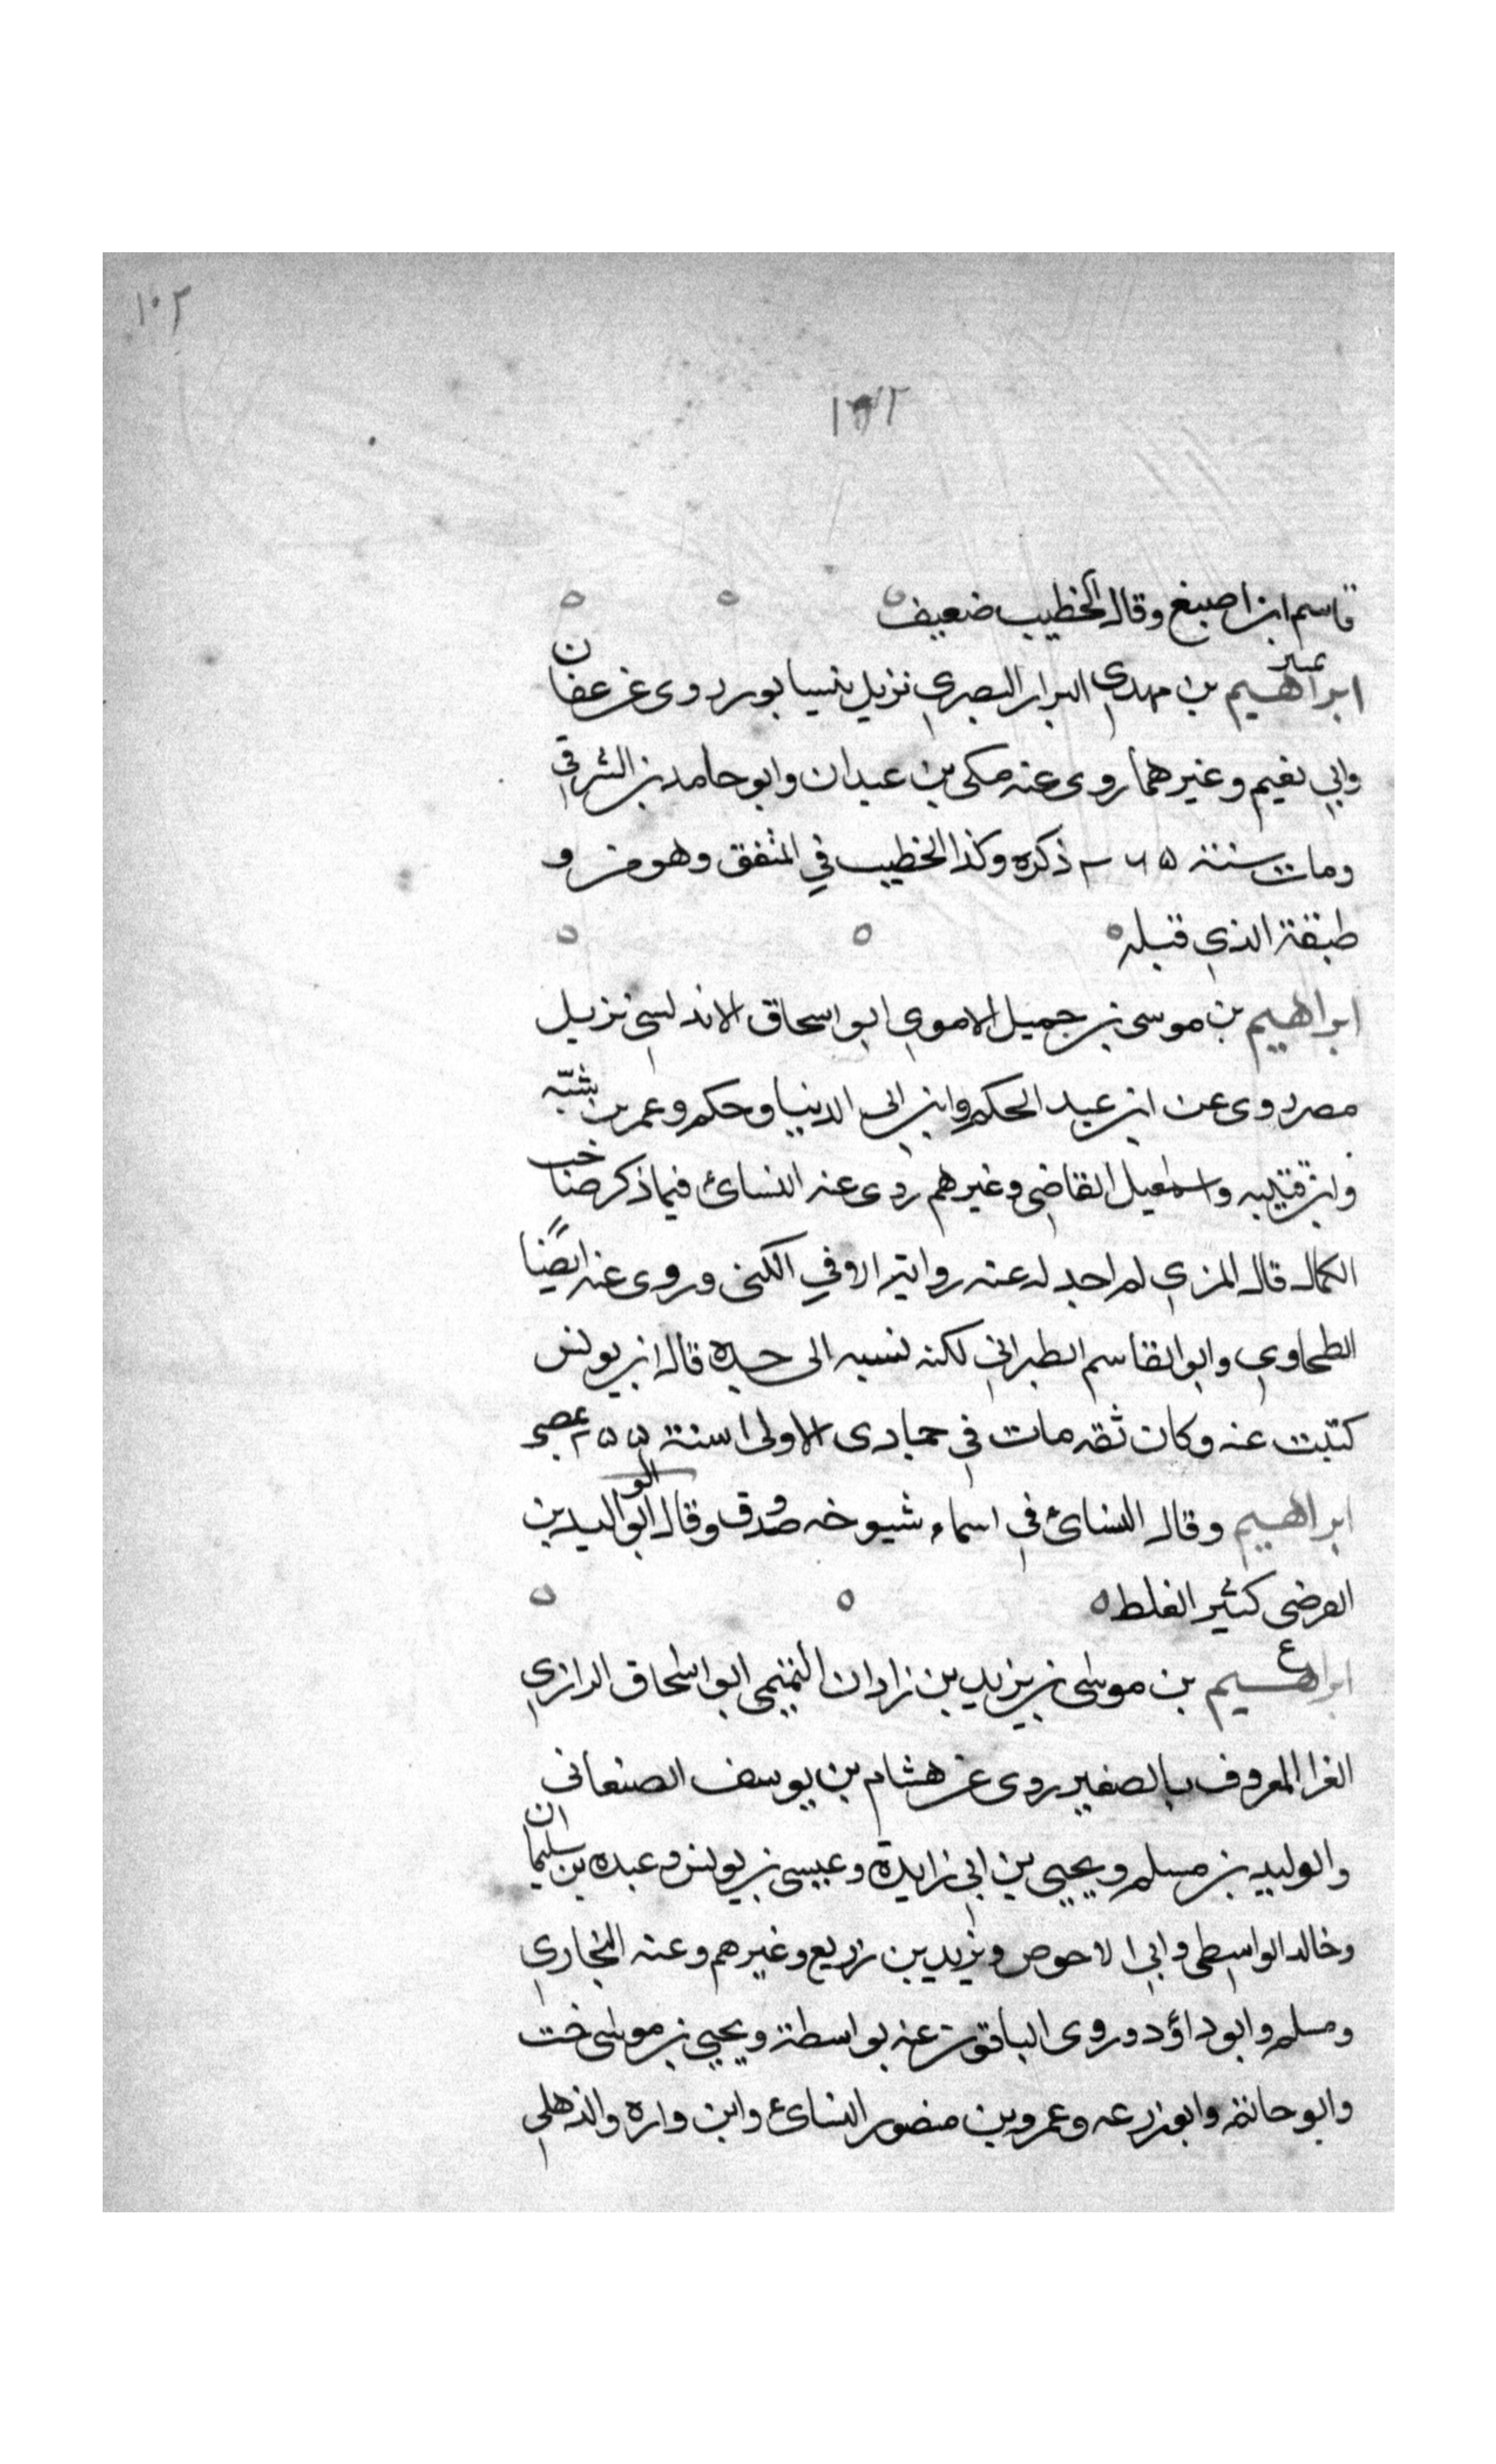 ١٠٢
قاسم ابن اصبغ وقال الخطيب ضعيف
تمييز
ابراهيم بن مهدي البزار البصري نزيل نيسابور روى عن عفان
وابي نعيم وغيرهما روى عنه مكى بن عبدان وابو حامد بن الشرقي
ومات سنة ٢٦٥ ذكره وكذا الخطيب في المتفق وهو من و
طبقة الذي قبله
ابراهيم بن موسى بن جميل الاموي ابو اسحاق الاندلسي نزيل
مصر روى عن ابن عبد الحكم وابن ابى الدنيا وحكم وعمر بن شبّه
وابن قتيبه واسمعيل القاضي وغيرهم روى عنه النسائ فيما ذكر صاحب
الكمال قال المزي لم اجد له عنه رواية الا في الكنى وروى عنه ايضًا
الطحاوي وابو القاسم الطبراني لكنه نسبه الى جده قال ابن يونس
كتبت عنه وكان ثقه مات في جمادى الاولى سنة
ابراهيم وقال النسائ في اسماء شيوخه صدوق وقال ابو الوليد بن
الفرضي كثير الغلط
ع
ابراهيم بن موسى بن يزيد بن زادان التميمي ابو اسحاق الرازي
الفرا المعروف بالصغير روى عن هشام بن يوسف الصنعاني
والوليد بن مسلم ويحيى بن ابي زايدة وعيسى بن يونس وعبده بن سليمان
وخالد الواسطى وابي الاحوص ويزيد بن زريع وغيرهم وعنه البخاري
ومسلم وابو داؤد وروى الباقون عنه بواسطة ويحيى بن موسى خت
وابو حاتم وابو زرعه وعمرو بن منصور النسائ وابن واره والذهلي